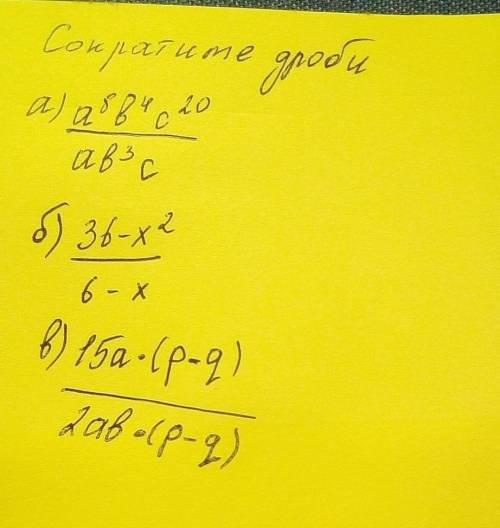 Сократите дроби
а) a⁸b⁴c²⁰
ab³c
б) 36-x²
6-x
в) 15a·(p-q)
2ab·(p-q)